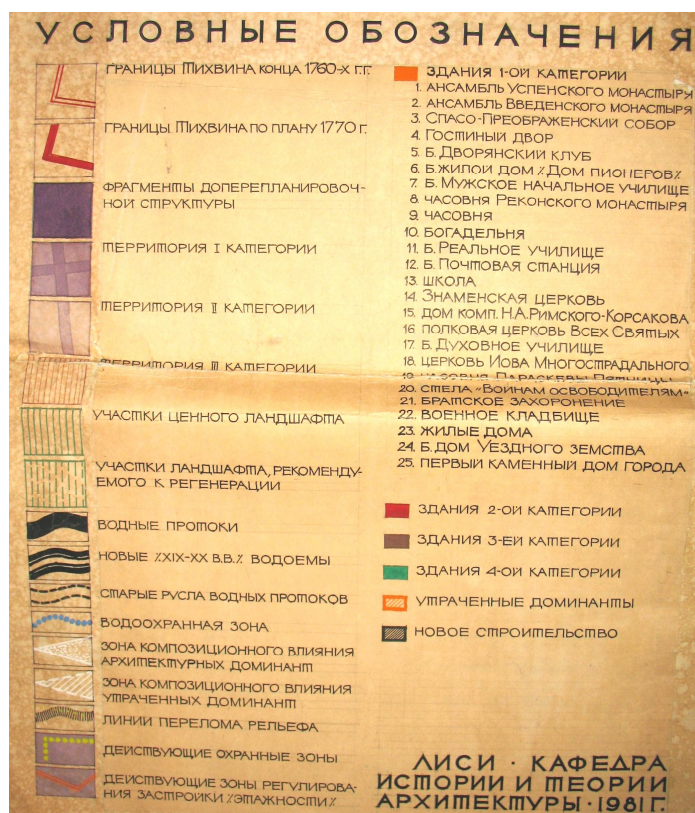 УСЛОВНЫЕ ОБОЗНАЧЕНИЯ
ГРАНИЦЫ ТИХВИНА КОНЦА 1760-Х Г.Г.
ГРАНИЦЫ ТИХВИНА ПО ПЛАНУ 1770 Г.
ФРАГМЕНТЫ ДОПЕРЕПЛАНИРОВОЧ-
НОЙ СТРУКТУРЫ
ТЕРРИТОРИЯ I КАТЕГОРИИ
ТЕРРИТОРИЯ II КАТЕГОРИИ
ТЕРРИТОРИЯ III КАТЕГОРИИ
УЧАСТКИ ЦЕННОГО ЛАНДШАФТА
УЧАСТКИ ЛАНДШАФТА, РЕКОМЕНДУ-
ЕМОГО К РЕГЕНЕРАЦИИ
ВОДНЫЕ ПРОТОКИ
НОВЫЕ /XIX-XX В.В./ ВОДОЕМЫ
СТАРЫЕ РУСЛА ВОДНЫХ ПРОТОКОВ
ВОДООХРАННАЯ ЗОНА
ЗОНА КОМПОЗИЦИОННОГО ВЛИЯНИЯ
АРХИТЕКТУРНЫХ ДОМИНАНТ
ЗОНА КОМПОЗИЦИОННОГО ВЛИЯНИЯ
УТРАЧЕННЫХ ДОМИНАНТ
ЛИНИИ ПЕРЕЛОМА РЕЛЬЕФА
ДЕЙСТВУЮЩИЕ ОХРАННЫЕ ЗОНЫ
ДЕЙСТВУЮЩИЕ ЗОНЫ РЕГУЛИРОВА-
НИЯ ЗАСТРОЙКИ /ЭТАЖНОСТИ/
ЗДАНИЯ 1-ОЙ КАТЕГОРИИ
1. АНСАМБЛЬ УСПЕНСКОГО МОНАСТЫРЯ
2. АНСАМБЛЬ ВВЕДЕНСКОГО МОНАСТЫРЯ
3. СПАСО-ПРЕОБРАЖЕНСКИЙ СОБОР
4. ГОСТИНЫЙ ДВОР
5. Б. ДВОРЯНСКИЙ КЛУБ
6. Б. ЖИЛОЙ ДОМ /ДОМ ПИОНЕРОВ/
7. Б. МУЖСКОЕ НАЧАЛЬНОЕ УЧИЛИЩЕ
8. ЧАСОВНЯ РЕКОНСКОГО МОНАСТЫРЯ
9. ЧАСОВНЯ
10. БОГАДЕЛЬНЯ
11. Б. РЕАЛЬНОЕ УЧИЛИЩЕ
12. Б. ПОЧТОВАЯ СТАНЦИЯ
13. ШКОЛА
14. ЗНАМЕНСКАЯ ЦЕРКОВЬ
15. ДОМ КОМП. Н.А. РИМСКОГО-КОРСАКОВА
16 ПОЛКОВАЯ ЦЕРКОВЬ ВСЕХ СВЯТЫХ
17. Б. ДУХОВНОЕ УЧИЛИЩЕ
18. ЦЕРКОВЬ ИОВА МНОГОСТРАДАЛЬНОГО
19. ЧАСОВНЯ ПАРАСКЕВЫ ПЯТНИЦЫ
20. СТЕЛА "ВОИНАМ ОСВОБОДИТЕЛЯМ"
21. БРАТСКОЕ ЗАХОРОНЕНИЕ
22. ВОЕННОЕ КЛАДБИЩЕ
23. ЖИЛЫЕ ДОМА
24. Б. ДОМ УЕЗДНОГО ЗЕМСТВА
25. ПЕРВЫЙ КАМЕННЫЙ ДОМ ГОРОДА
ЗДАНИЯ 2-ОЙ КАТЕГОРИИ
ЗДАНИЯ 3-ЕЙ КАТЕГОРИИ
ЗДАНИЯ 4-ОЙ КАТЕГОРИИ
УТРАЧЕННЫЕ ДОМИНАНТЫ
НОВОЕ СТРОИТЕЛЬСТВО
ЛИСИ · КАФЕДРА
ИСТОРИИ И ТЕОРИИ
АРХИТЕКТУРЫ · 1981 Г.